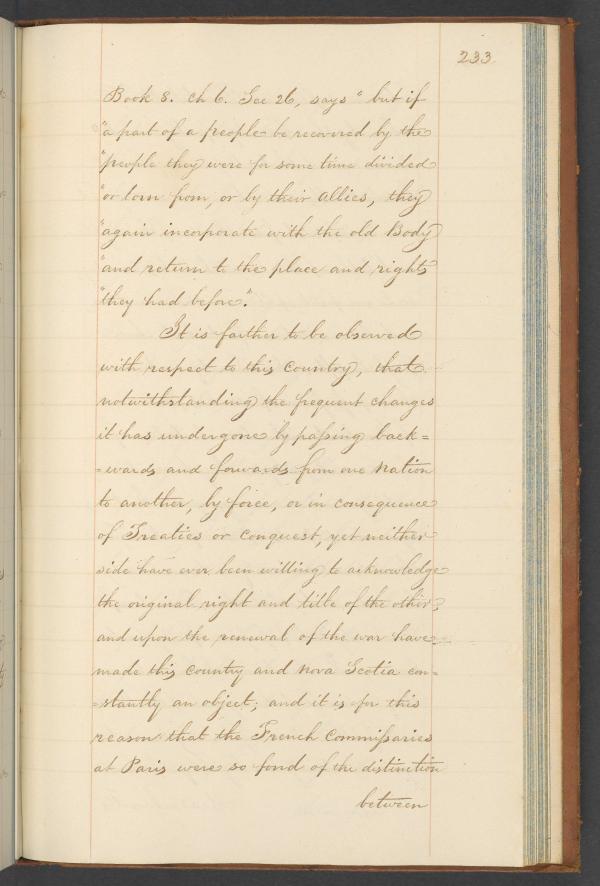 233
Book 8. ch 6. Sec 26, says "but if
"a part of a people be recovered by the
"people they were for some time divided
"or torn from, or by their Allies, they
"again incorporate with the old Body
"and return to the place and rights
"they had before".
It is farther to be observed
with respect to this Country, that
notwithstanding the frequent changes
it has undergone by passing back=
=wards and forwards from one Nation
to another, by force, or in consequence
of Treaties or conquest, yet neither
side have ever been willing to acknowledge
the original right and title of the other,
and upon the renewal of the war have
made this country and Nova Scotia con=
=stantly an object; and it is for this
reason that the French Commissaries
at Paris were so fond of the distinction
between